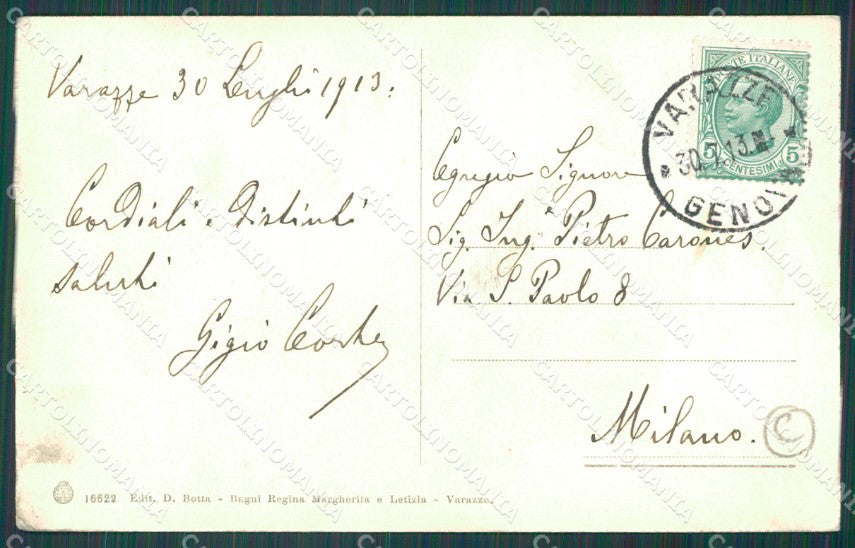 Varazze 30 Luglio 1913.
Cordiali e distinti
saluti
Gigio
Egregio Signore
Sig. Ing. Pietro Carones.
Via S. Paolo 8
Milano.
C
POSTE ITALIANE
5 5
CENTESIMI
VARAZZE
30.7.13
GENOVA
16622 Edit. D. Botta - Bagni Regina Margherita e Letizia - Varazze.
CARTOLINOMANIA